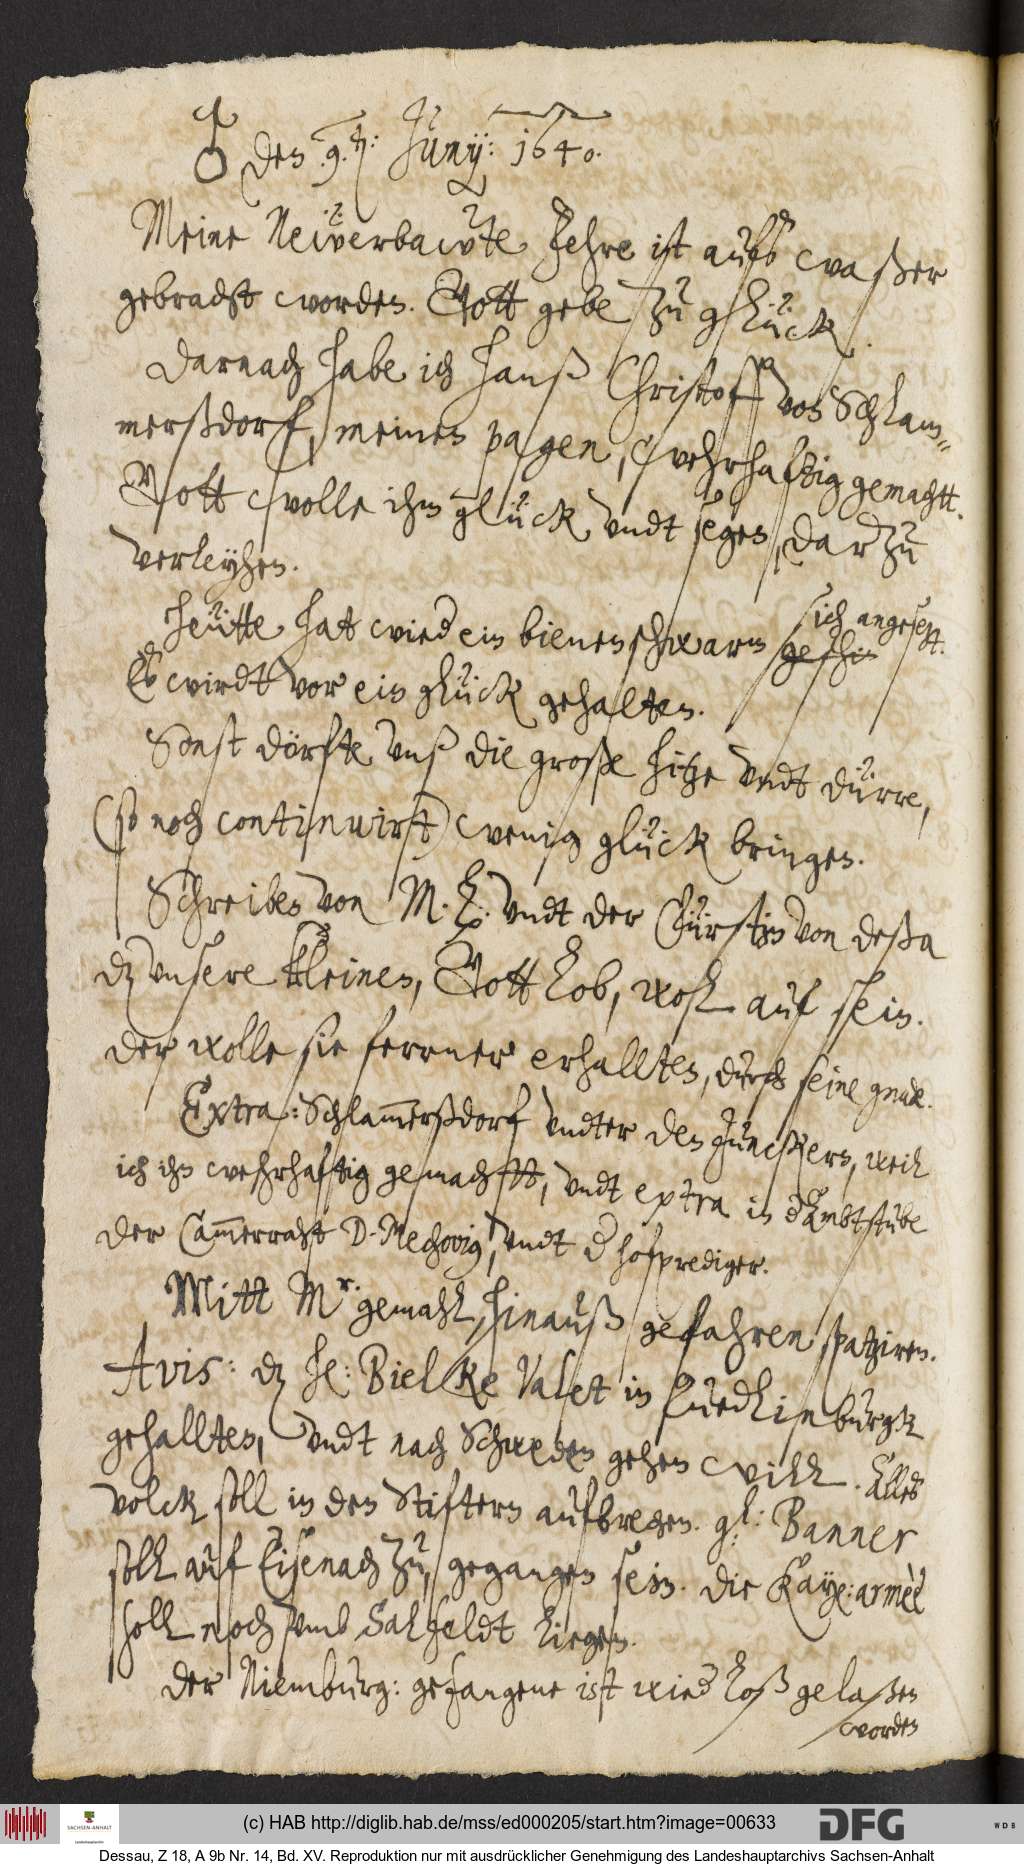 ♂ den 9.ten: Juny: 1640.
Meine Neüerbawte Fehre ist aufs waßer
gebracht worden. Gott gebe zu glück.
Darnach habe ich Hanß Christoff von Schlam=
merßdorf, meinen pagen, wehrhaftig gemacht.
Gott wolle ihm glück, vndt segen, darzu
verleyhen.
Heütte hat wied ein bienenschwarm sich angesetzt.
Es wirdt vor ein glück gehalten.
Sonst dörfte vnß die große hitze vndt dürre,
(so noch continuirt) wenig glück bringen.
Schreiben von M. h: vndt der Fürstin von deßa
dz vnsere kleinen, Gott lob, wol auf sein.
der wolle sie ferrner erhallten, durch seine gnade.
Extra: Schlam̄erßdorf vndter den Junckern, weil
ich ihn wehrhaftig gemacht, vndt extra in d Ambtstube
der Cam̄erraht D. Mechovius, vndt d hofprediger.
Mitt Mr. gemahl, hinauß gefahren spatziren.
Avis: dz He: Bielke Valet in Quedlinburgk
gehallten, vndt nach Schweden gehen will. Alles
volck soll in den Stiftern aufbrechen. gl: Banner
soll auf Eisenach zu, gegangen sein. die Kayß: armèe
soll noch vmb Salfeldt liegen.
der Niemburg: gefangene ist wied loß gelaßen
worden
SACHSEN-ANHALT
Landeshauptarchiv
(c) HAB http://diglib.hab.de/mss/ed000205/start.htm?image=00633
DFG
WDB
Dessau, Z 18, A 9b Nr. 14, Bd. XV. Reproduktion nur mit ausdrücklicher Genehmigung des Landeshauptarchivs Sachsen-Anhalt